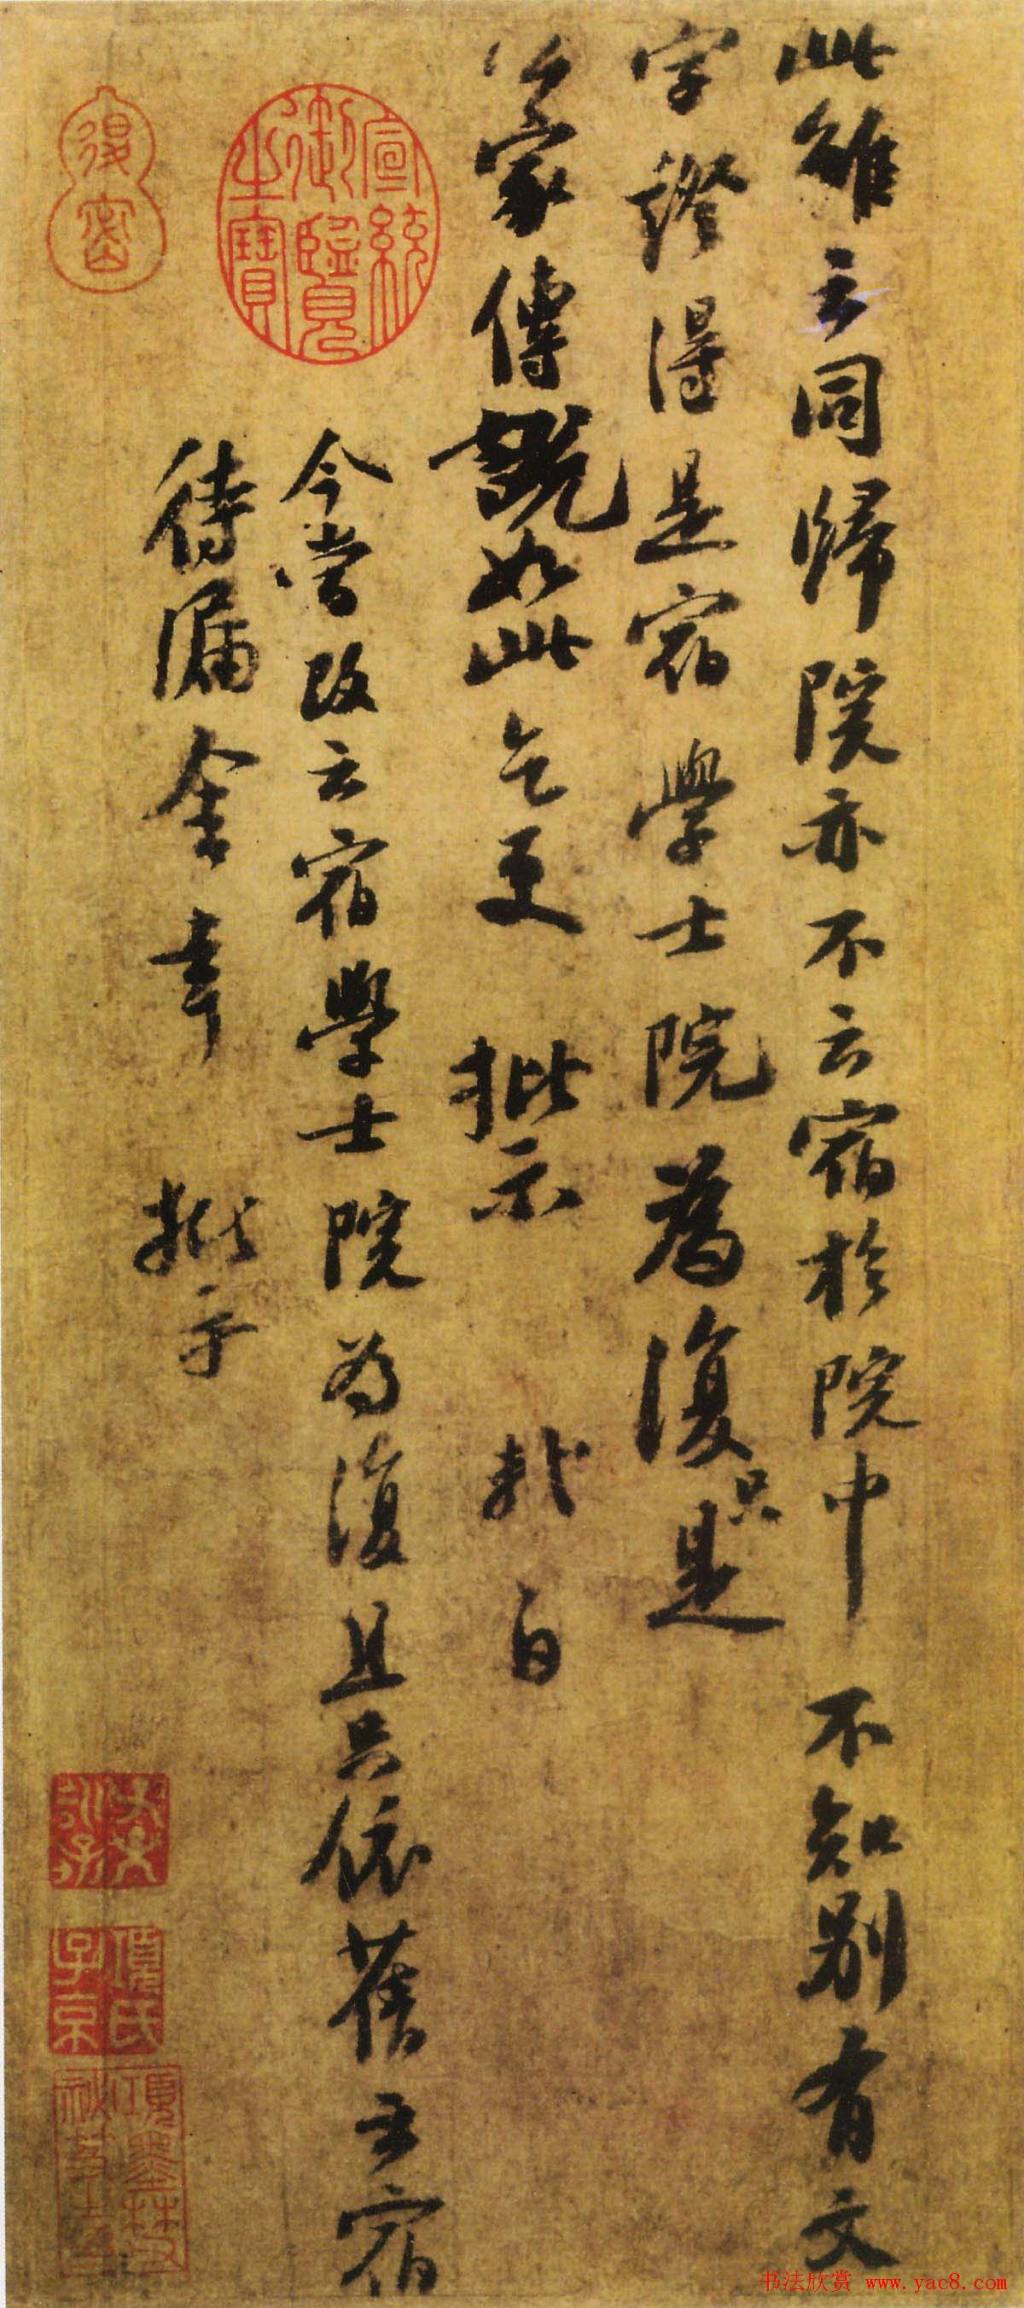 此雖云同歸院亦不云宿於院中不知別有文
字證得是宿學士院為復只是
公家傳說如此乞更批示 軾白
今當改云宿學士院為復且只依舊云宿
待漏舍幸批示
宣統御覽之寶
退密
項氏子京
書法欣賞 www.yac8.com